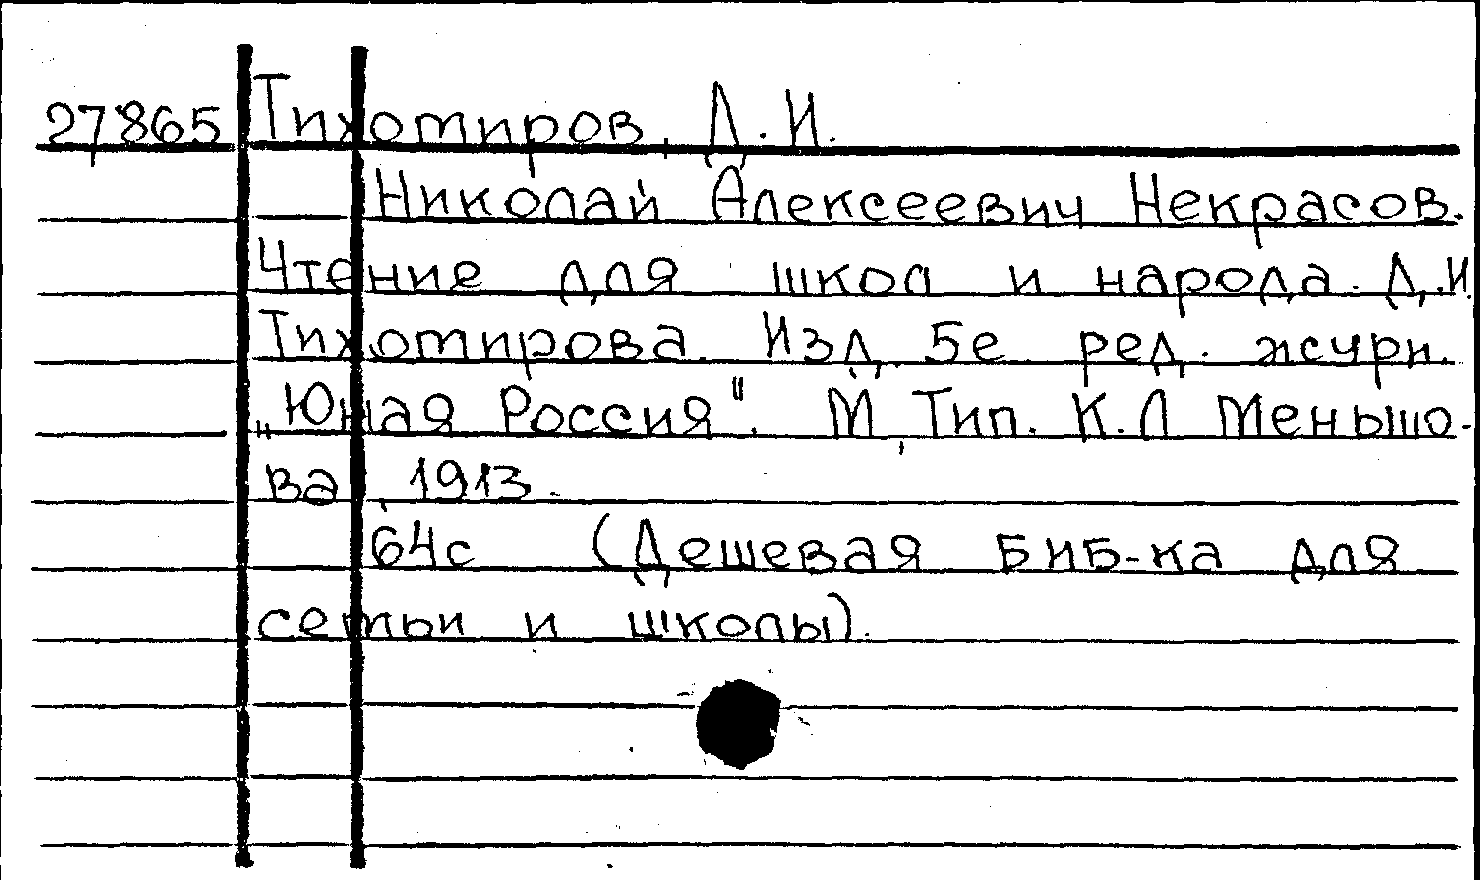 27865 Тихомиров, Д.И.
Николай Алексеевич Некрасов.
Чтение для школ и народа. Д.И.
Тихомирова. Изд. 5е. ред. журн.
„Юная Россия". М., Тип. К.Л Меньшо-
ва, 1913.
64с (Дешевая биб-ка для
семьи и школы).